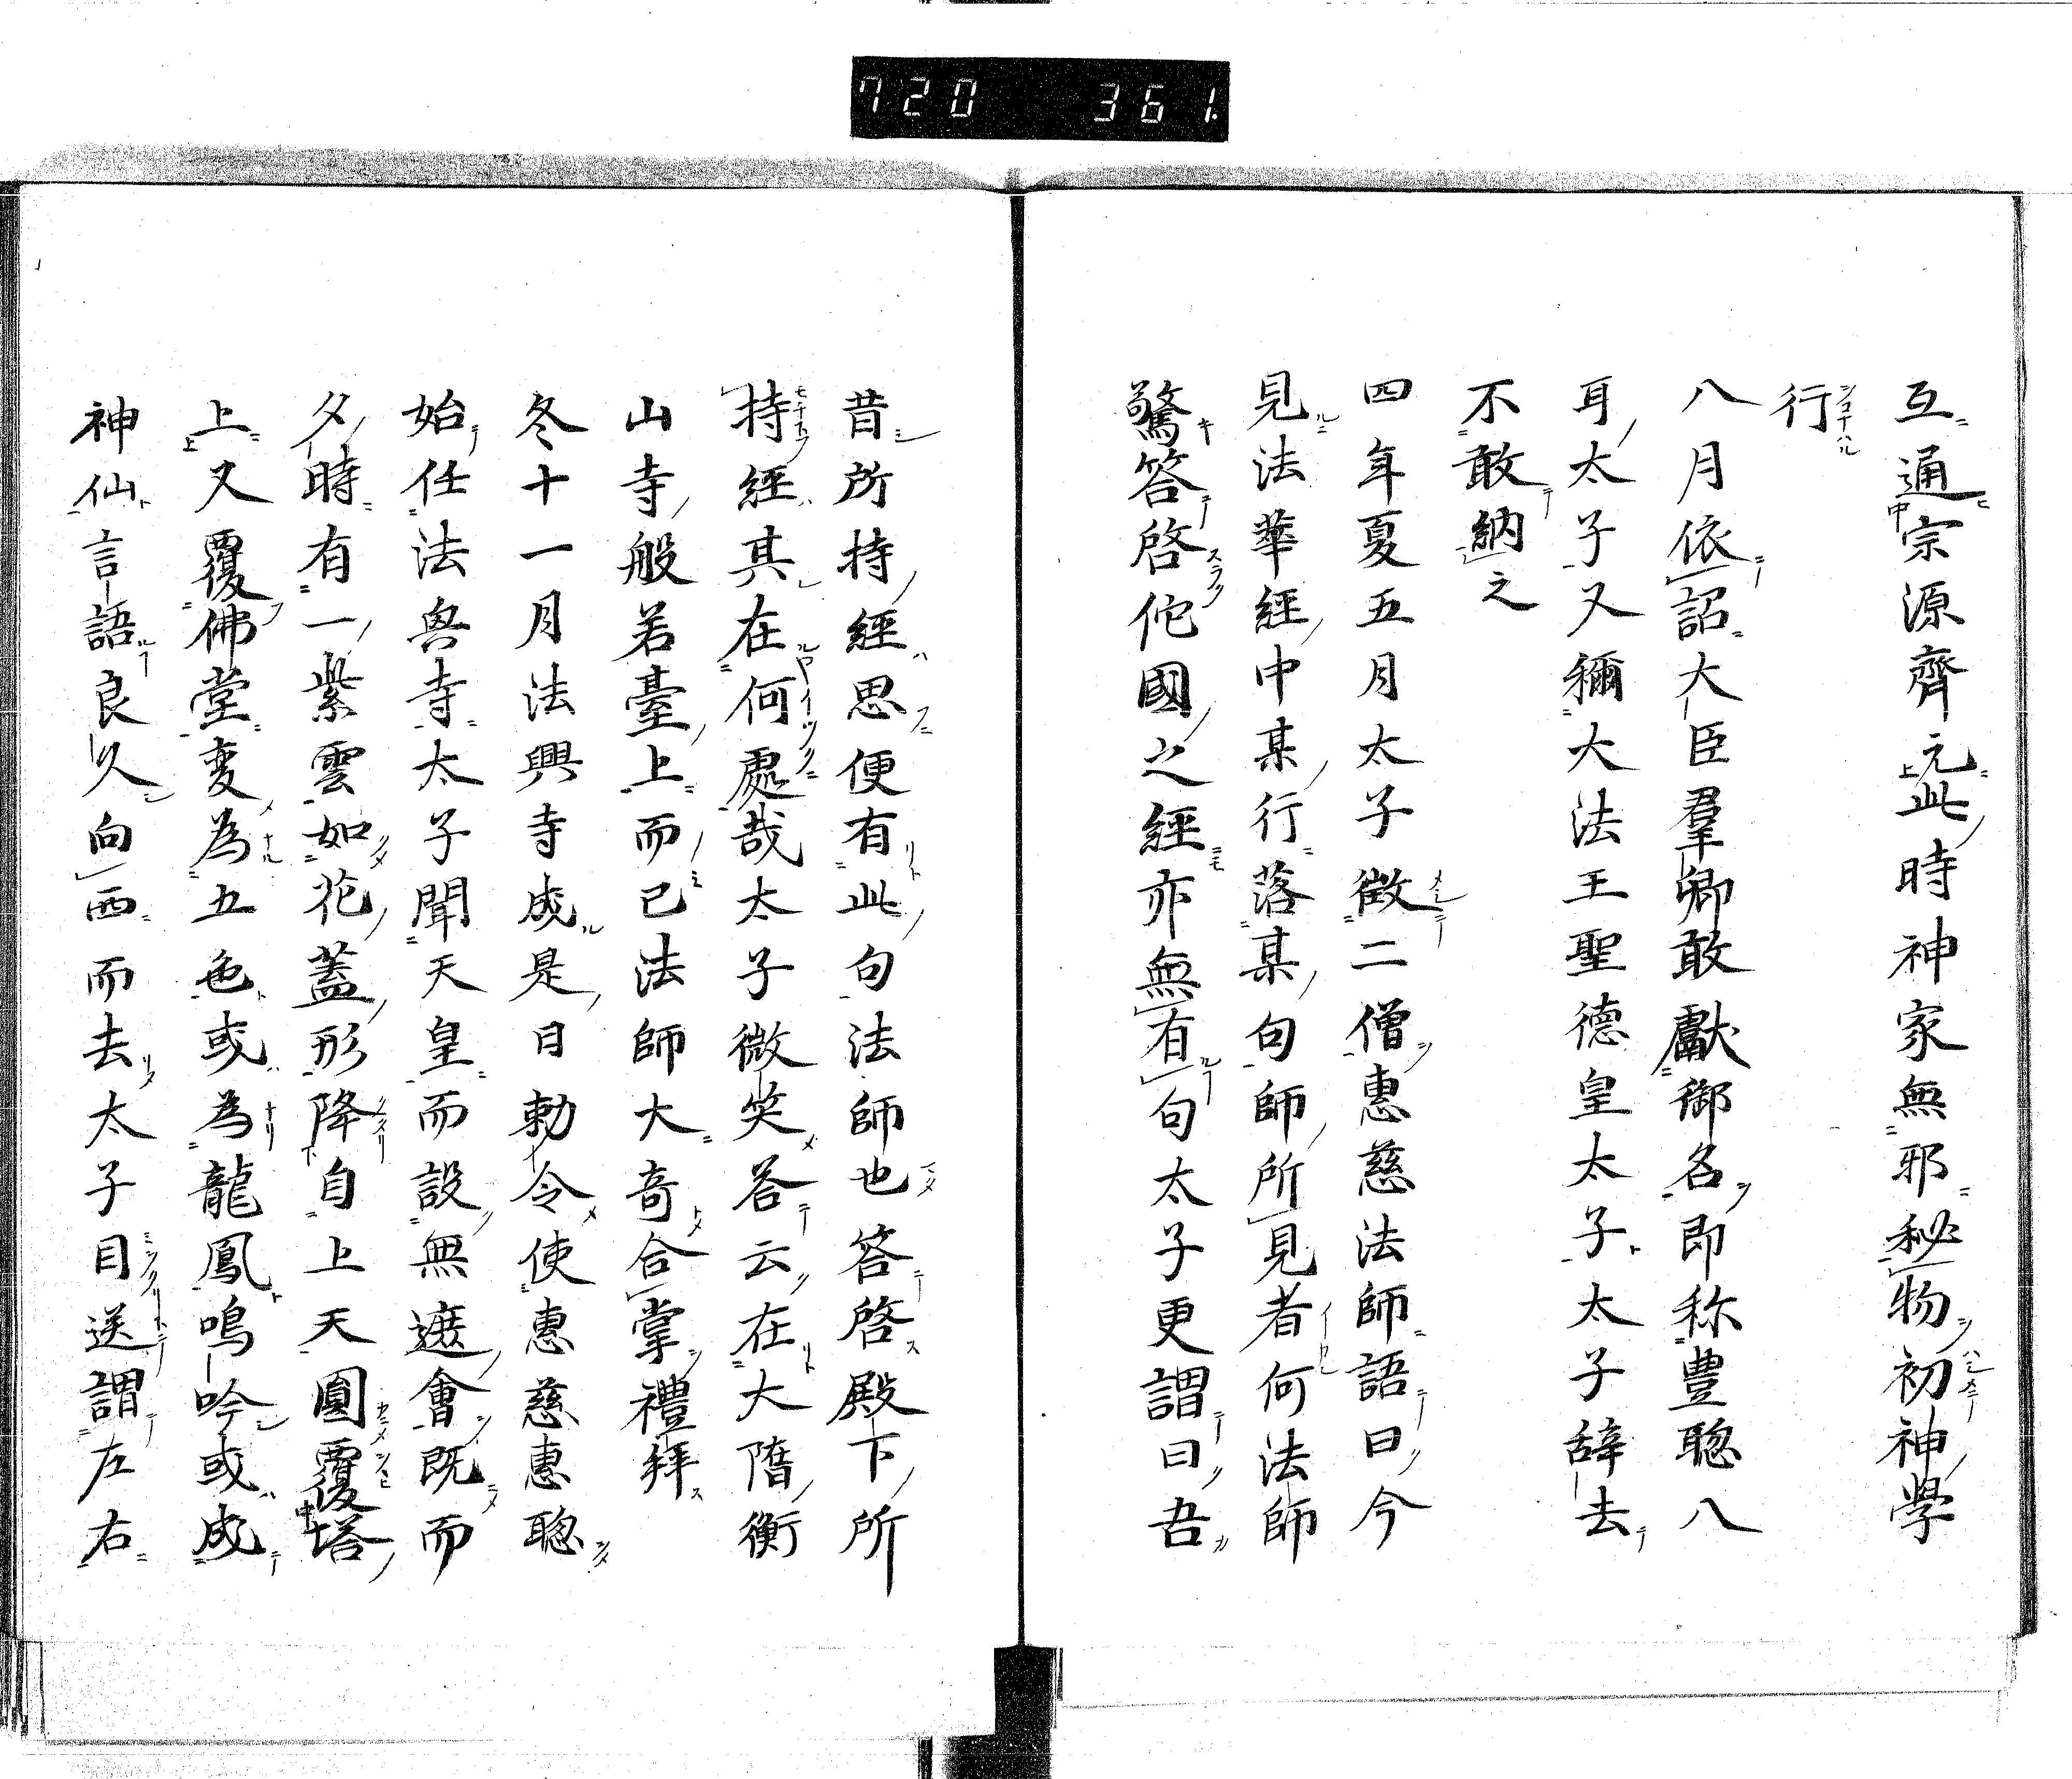 720 361.
互通宗源齊元此時神家無邪秘物初神學
行
八月依詔大臣羣卿敢獻御名即称豊聡八
耳太子又稱大法王聖德皇太子太子辞去
不敢納之
四年夏五月太子徵二僧惠慈法師語曰今
見法華經中某行落某句師所見者何法師
驚答啓佗國之經亦無有句太子更謂曰吾
昔所持經思便有此句法師也答啓殿下所
持經其在何處哉太子微笑答云在大隋衡
山寺般若臺上而已法師大奇合掌禮拜
冬十一月法興寺成是日勅令使惠慈惠聡
始任法興寺太子聞天皇而設無遮會既而
夕時有一紫雲如花蓋形降自上天圓覆塔
上又覆佛堂変為五色或為龍鳳鳴吟或成
神仙言語良久向西而去太子目送謂左右